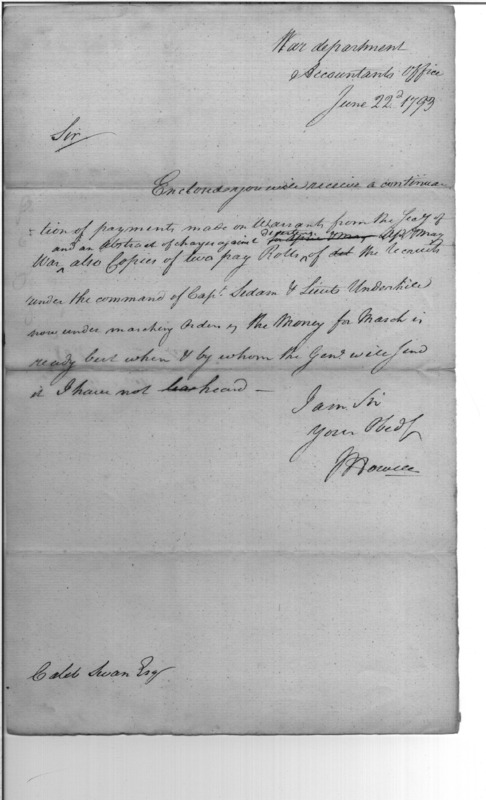 War department
Accountants office
June 22d 1793
Sir
Enclosed you will receive a continua
tion of payments made on Warrants from the Secy of
and an abstract of charges against for April & May
War, also Copies of two pay Rolls, of the recruits
under the command of Capt. Sedam & Lieut Underhill
now under marching orders, the Money for March is
ready but when & by whom the Genl will send
it I have not heard —
I am Sir
Your Obedt
J Howell
Caleb Swan Esq